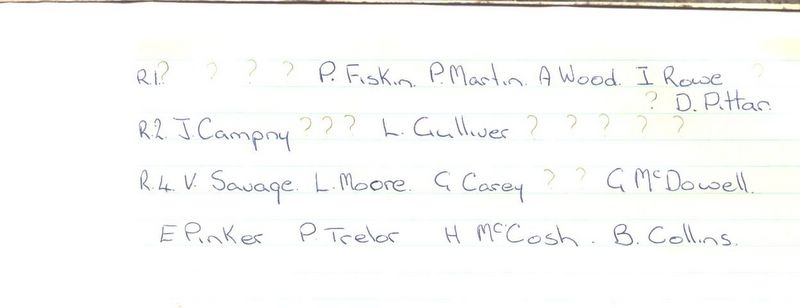 R.1.? ? ? ? P. Fiskin. P. Martin. A Wood. I Rowe ?
? D. Pittar.
R.2. J. Campny ? ? ? L. Gulliver ? ? ? ? ?
R.4. V. Savage. L. Moore. G Casey ? ? G McDowell.
E Pinker P. Trelor H McCosh. B. Collins.